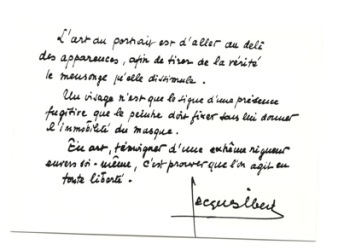 L'art du portrait est d'aller au delà
des apparences, afin de tirer de la vérité
le mensonge qu'elle dissimule.
Un visage n'est que le signe d'une présence
fugitive que le peintre doit fixer sans lui donner
l'immobilité du masque.
En art, témoigner d'une extrême rigueur
envers soi-même, c'est prouver que l'on agit en
toute liberté.